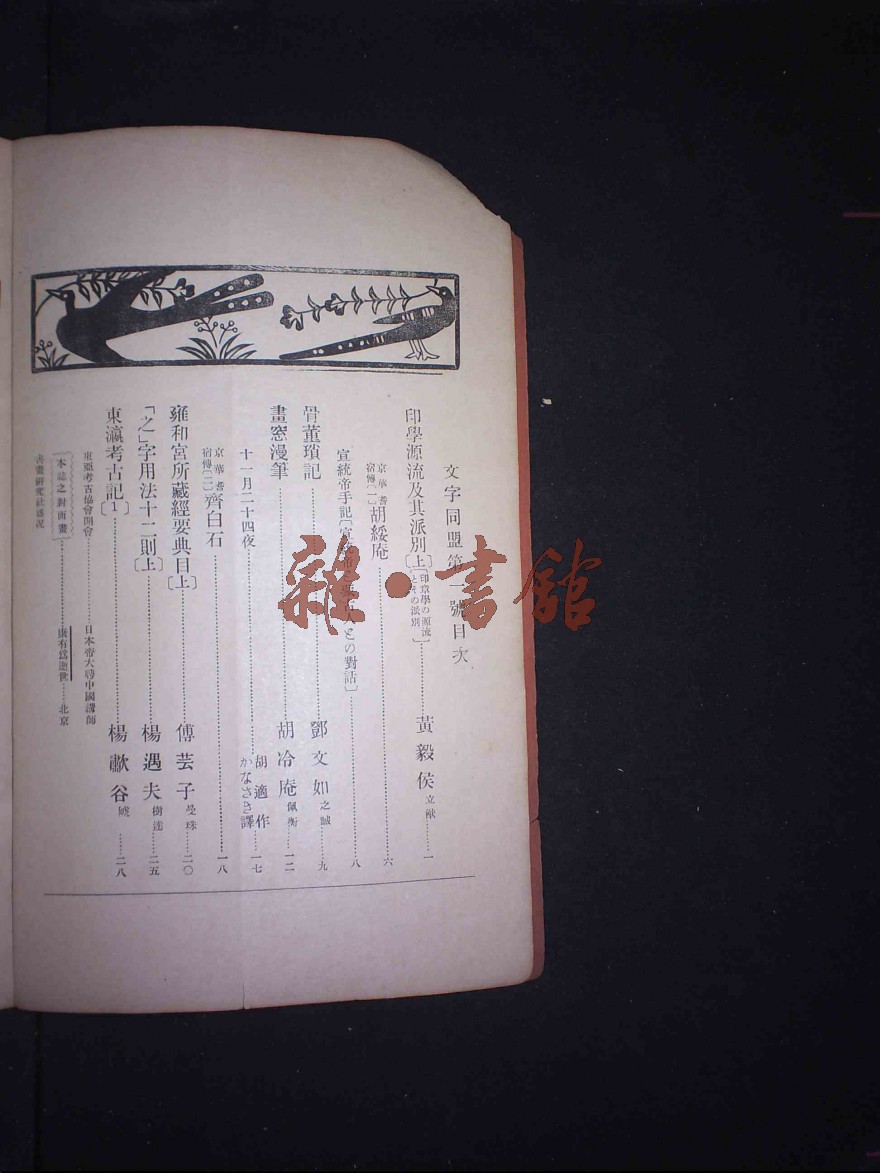 文字同盟第一號目次
印學源流及其派別〔上〕〔印章學の源流とその派別〕……黃毅侯 立猷……一
京華耆宿傳〔一〕胡綏庵……六
宣統帝手記〔宣 との對話〕……八
骨董瑣記……鄧文如 之誠……九
畫窓漫筆……胡冷庵 佩衡……一二
十一月二十四夜……胡適作 かなさき譯……一七
京華耆宿傳〔二〕齊白石……一八
雍和宮所藏經要典目〔上〕……傅芸子 曼珠……二〇
「之」字用法十二則〔上〕……楊遇夫 樹達……二五
東瀛考古記〔1〕……楊歗谷 㰙……二八
東亞考古協會開會……日本帝大聘中國講師
本誌之對面畫……康有爲逝世……北京
書畫研究社盛況
雜·書館